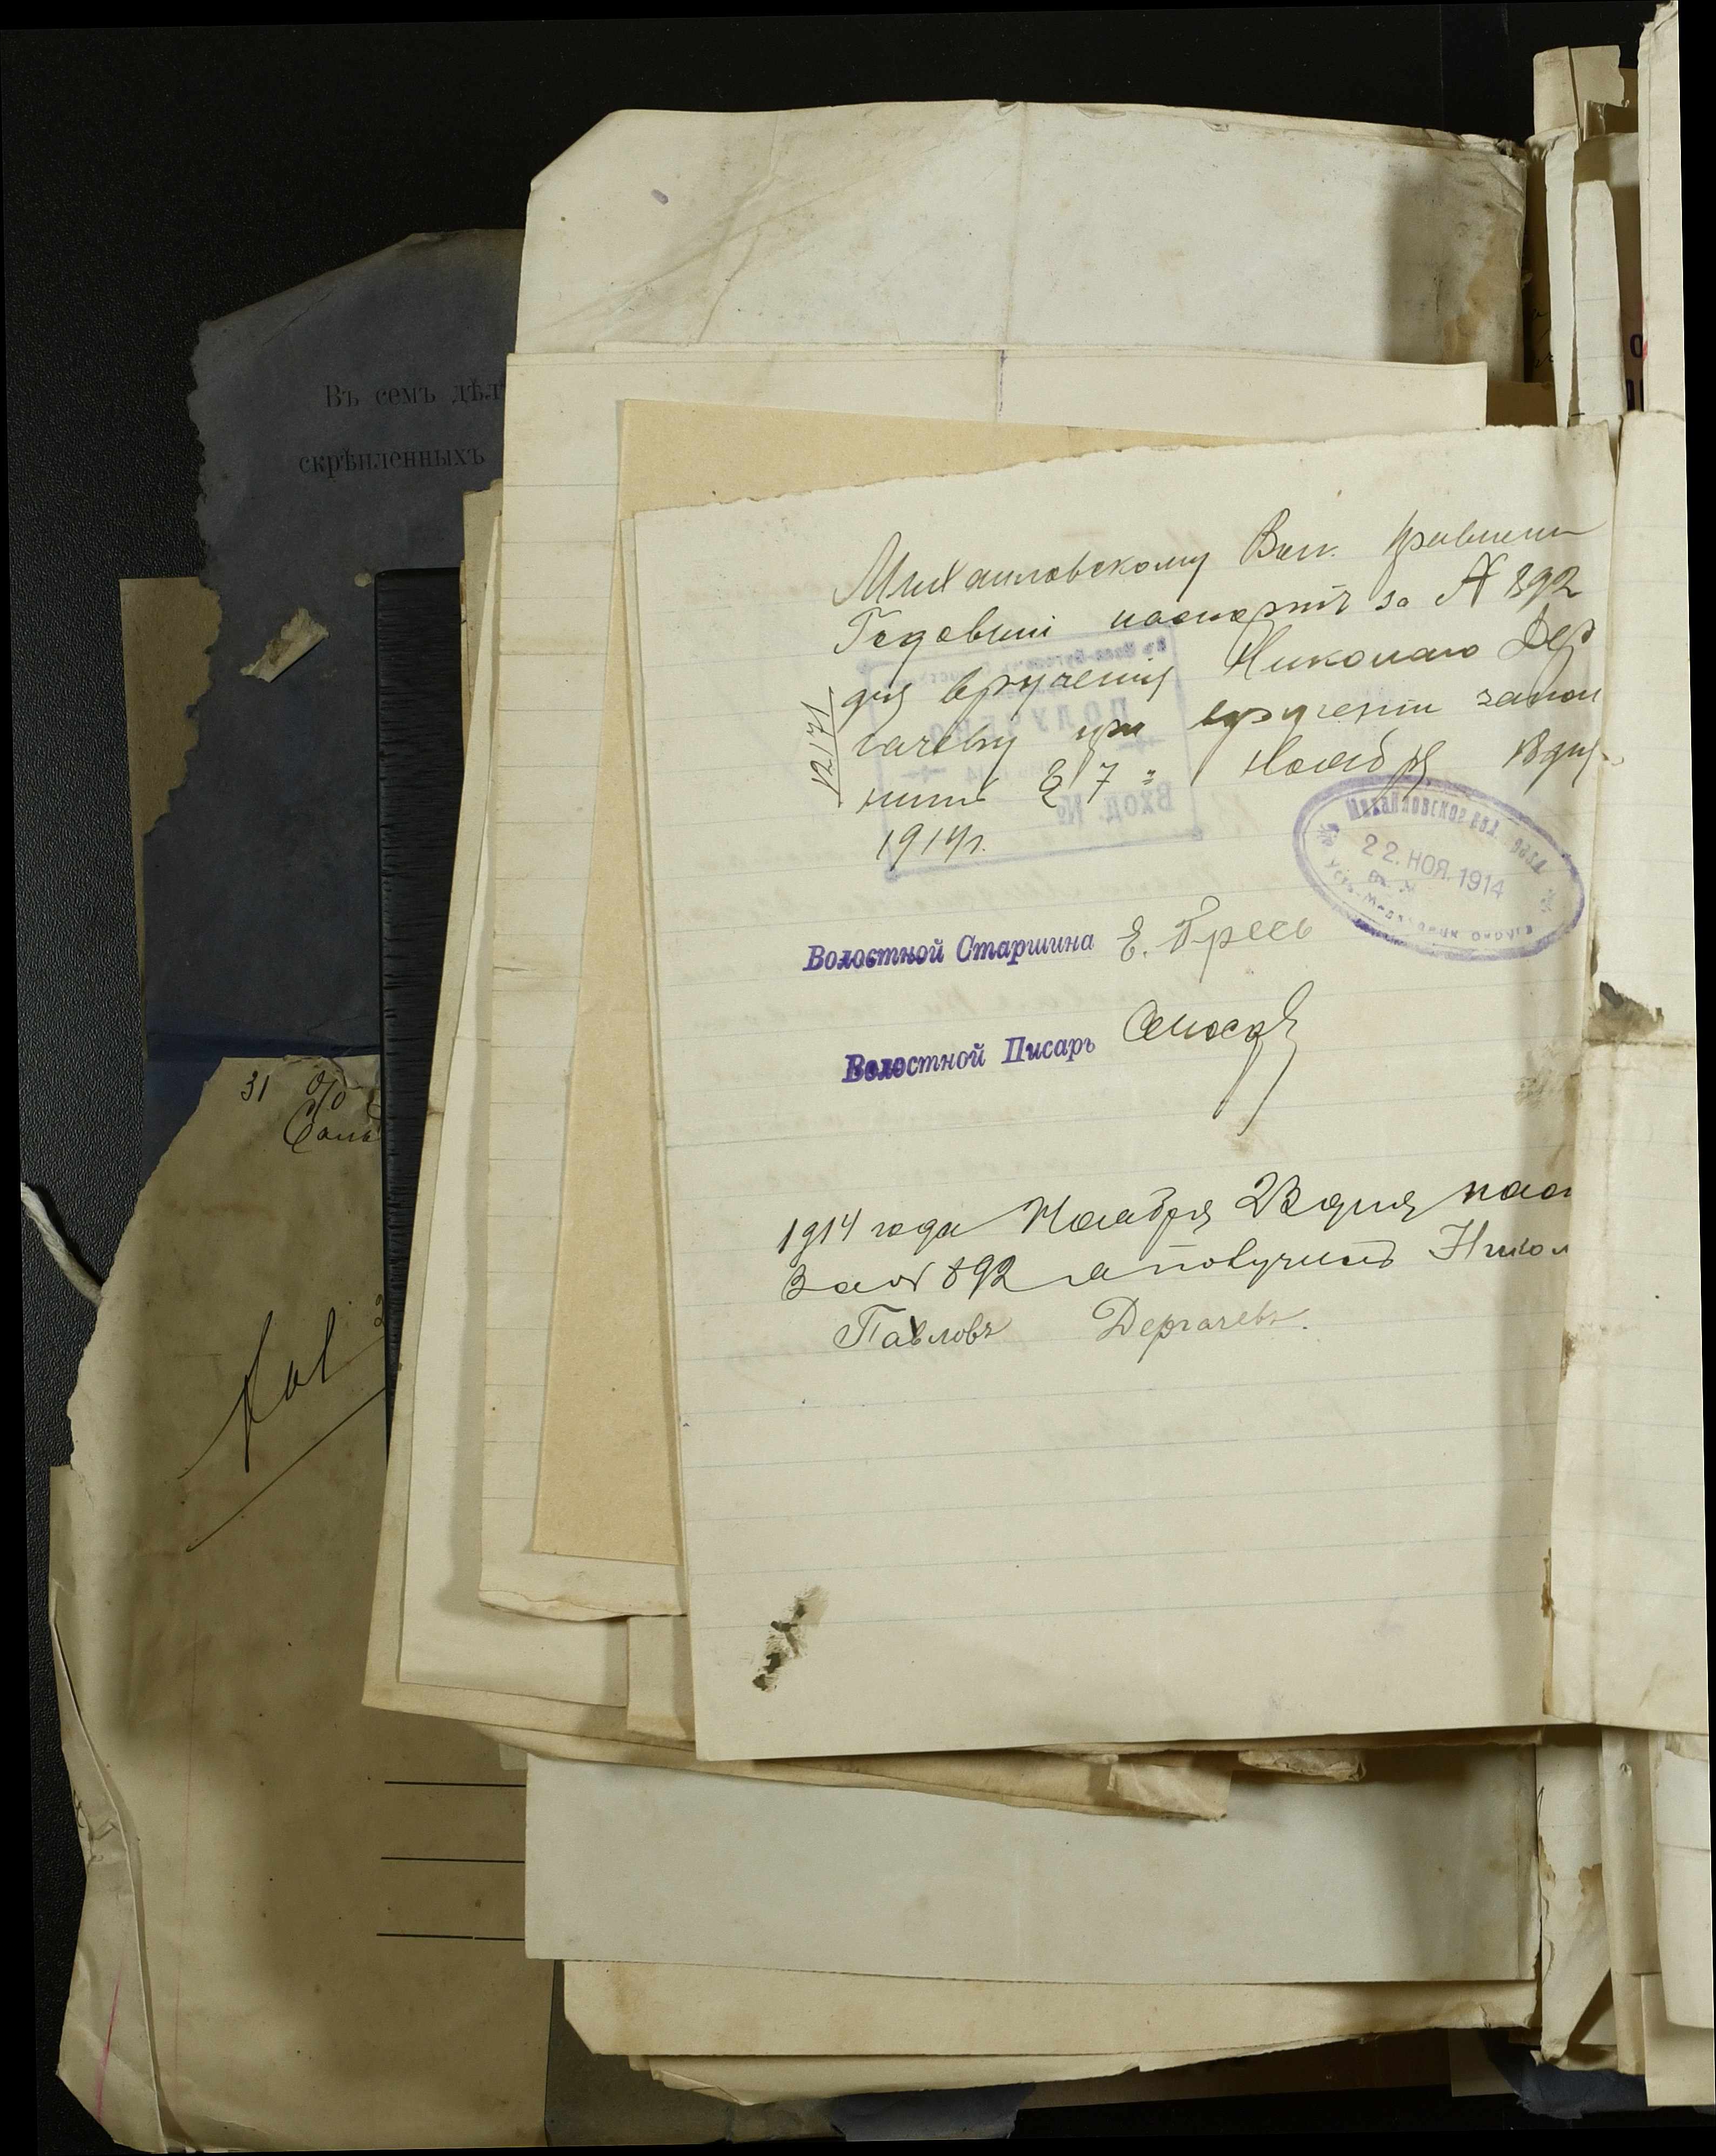 Въ семъ дѣл
скрѣпленныхъ
Михаиловскому Вол. Правлені
Годовый паспортъ за № 892
для врученія Николаю Дер
гачеву при врученіи запол
нить 7 Ноября дня
1914 г.
12171
ПОЛУЧЕНО
Вход. №
Михайловское вол.
22. НОЯ. 1914
Волостной Старшина Е.
Волостной Писарь
31
1914 года Ноабря 23 дня пас
За № 892 а получилъ Никол
Павловъ Дергачевъ.